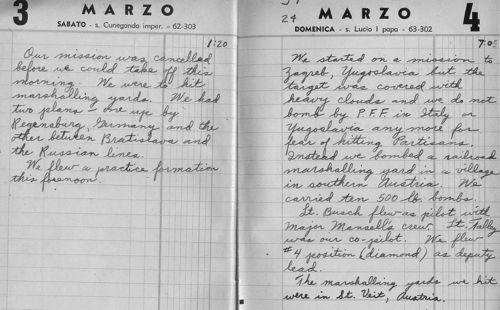 3 MARZO
SABATO - s. Cunegonda imper. - 62-303
1:20
Our mission was cancelled
before we could take off this
morning. We were to hit
marshalling yards. We had
two plans - one up by
Regensburg, Germany and the
other between Bratislava and
the Russian lines.
We flew a practice formation
this forenoon.
24
MARZO 4
DOMENICA - s. Lucio I papa - 63-302
7:05
We started on a mission to
Zagreb, Yugoslavia but the
target was covered with
heavy clouds and we do not
bomb by P.F.F. in Italy or
Yugoslavia any more for
fear of hitting Partisans.
Instead we bombed a railroad
marshalling yard in a village
in southern Austria. We
carried ten 500 lb. bombs.
Lt. Busch flew as pilot with
Major Mansell's crew. Lt.
was our co-pilot. We flew
#4 position (diamond) as deputy
lead.
The marshalling yards we hit
were in St. Veit, Austria.